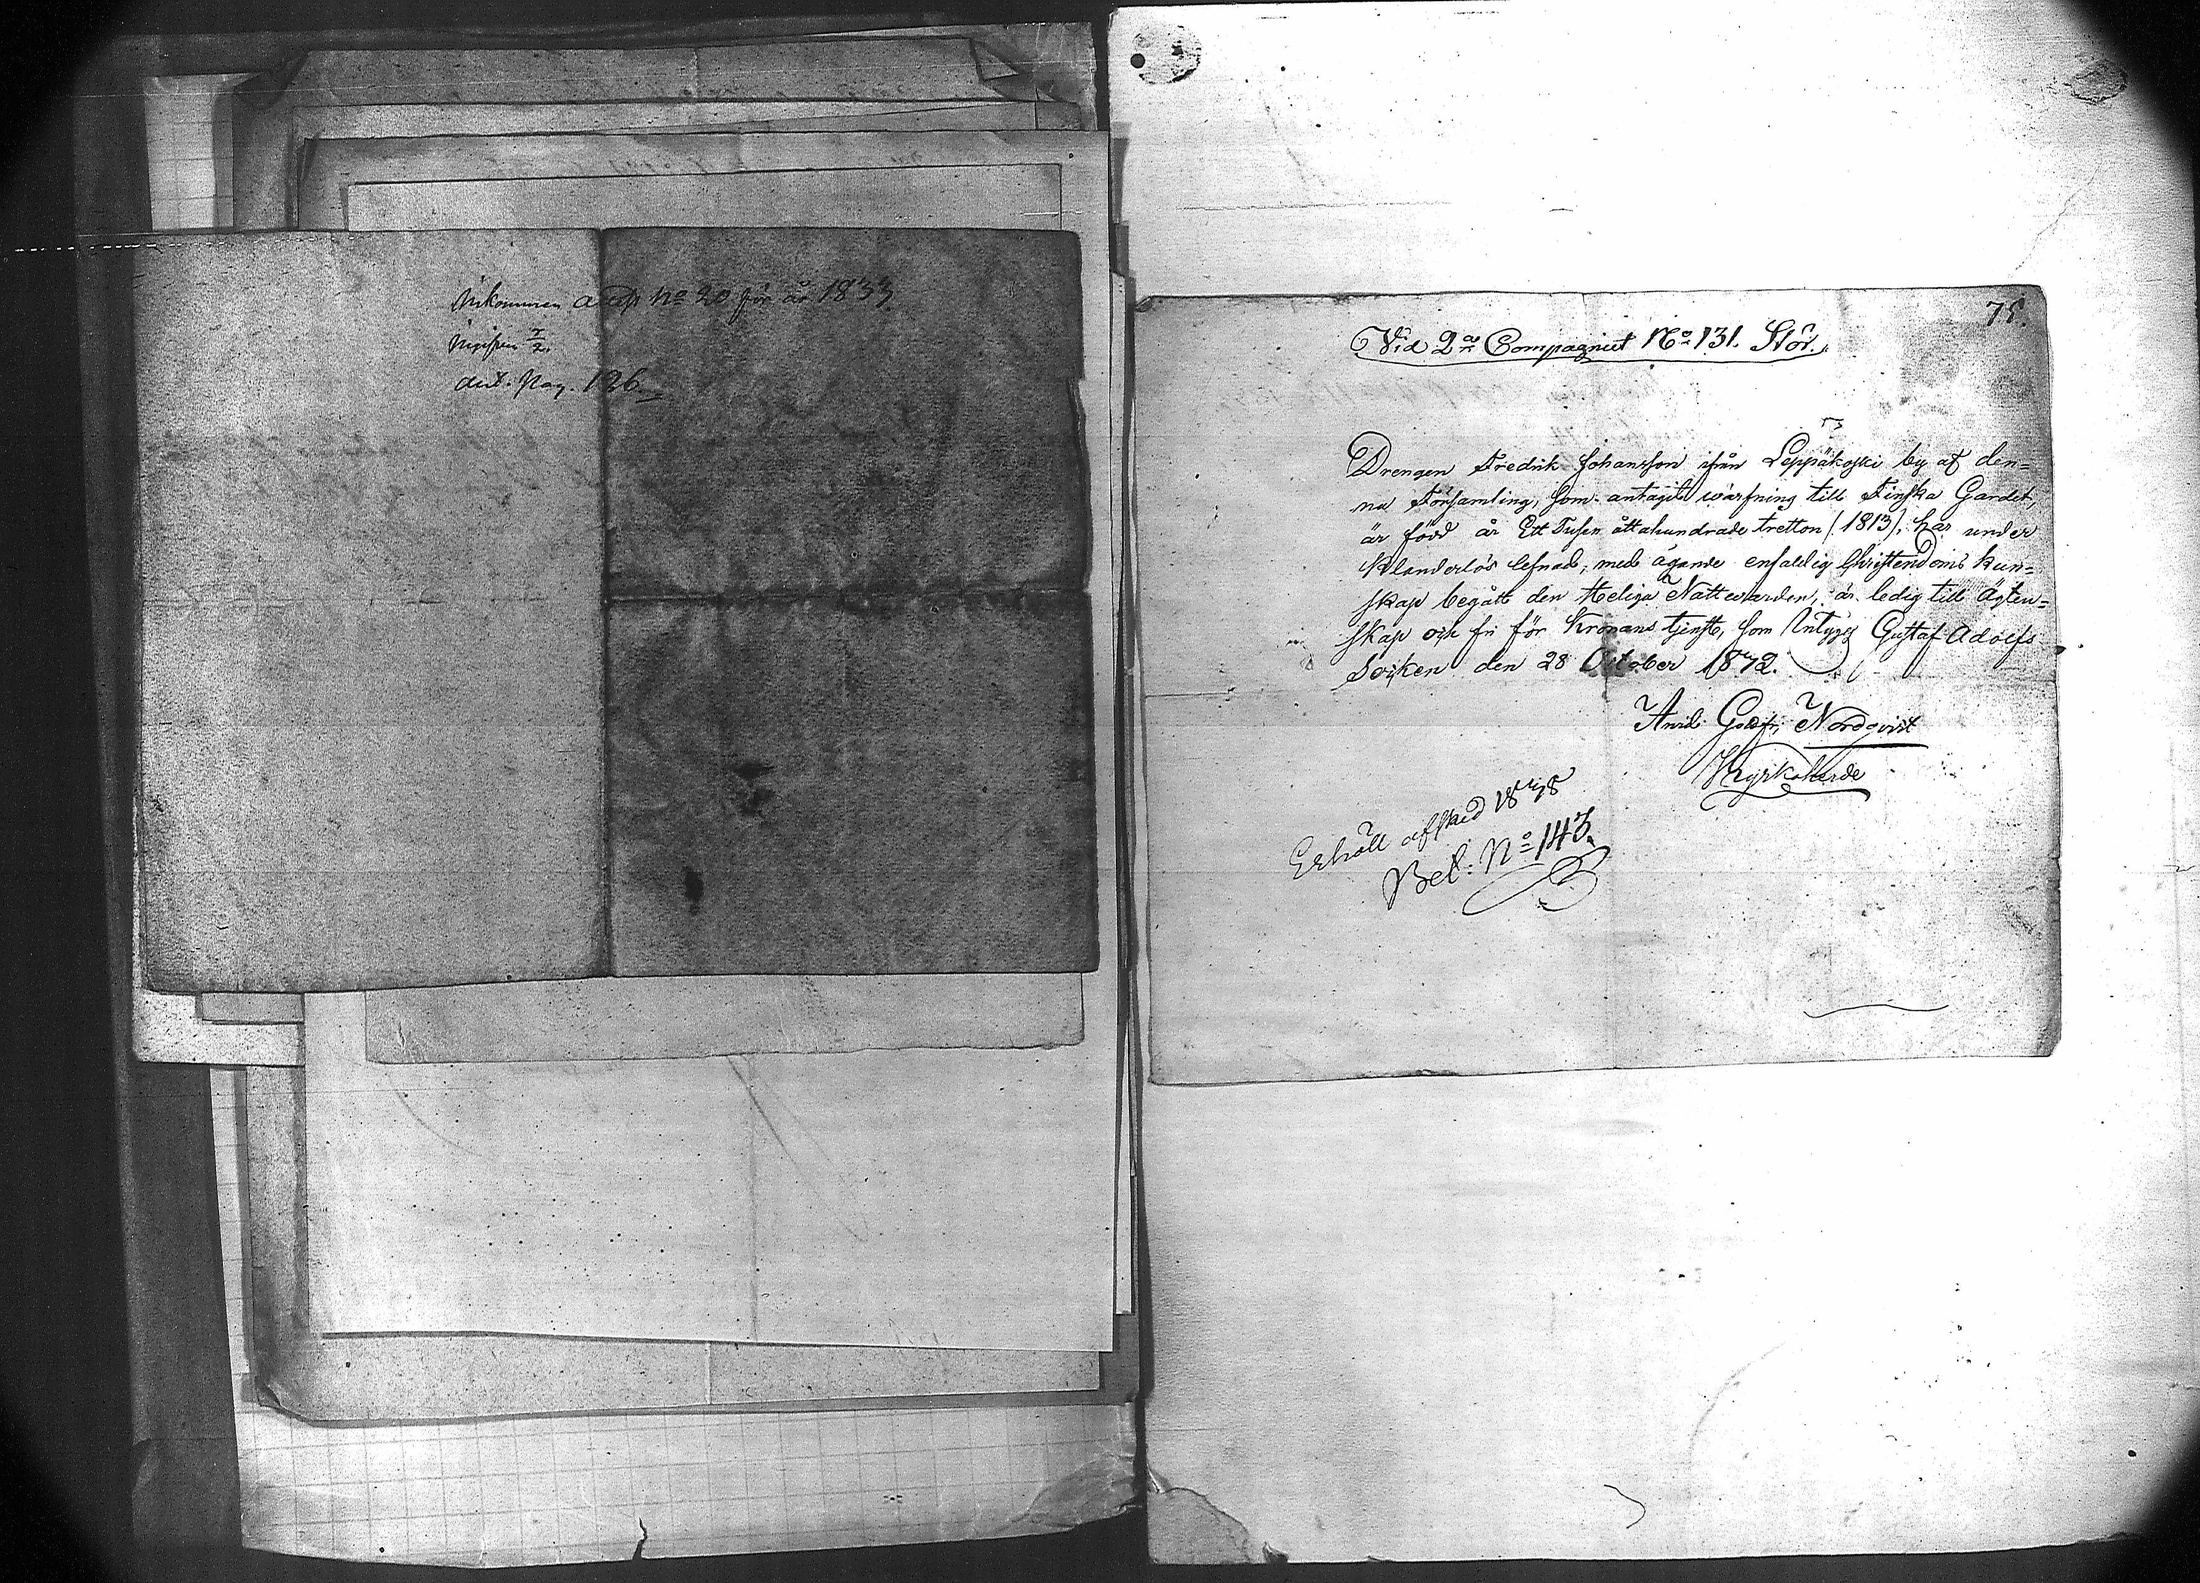 Ankommen a Rap No 20 för år 1833.
dict. Pag. 126
75.
Vid 2a Compagniet No 131. Stör.
Drengen Fredrik Johansson ifrån Leppäkoski by af den-
na Församling, som antagit wärfning till Finska Gardet,
är född år Ett Tusen åttahundrade tretton (1813), har under
Klanderlös lefnad, med ägande enfaldig Christendoms kun-
skap begått den Heliga Nattwarden, är ledig till Ägten-
skap och fri för Kronans tjenst, som Intygas Gustaf Adolfs
Socken den 28 October 1832.
Arvid Godfr. Nordqvist
Kyrkoherde
Erhöll afsked 1838
Bet: No 143.